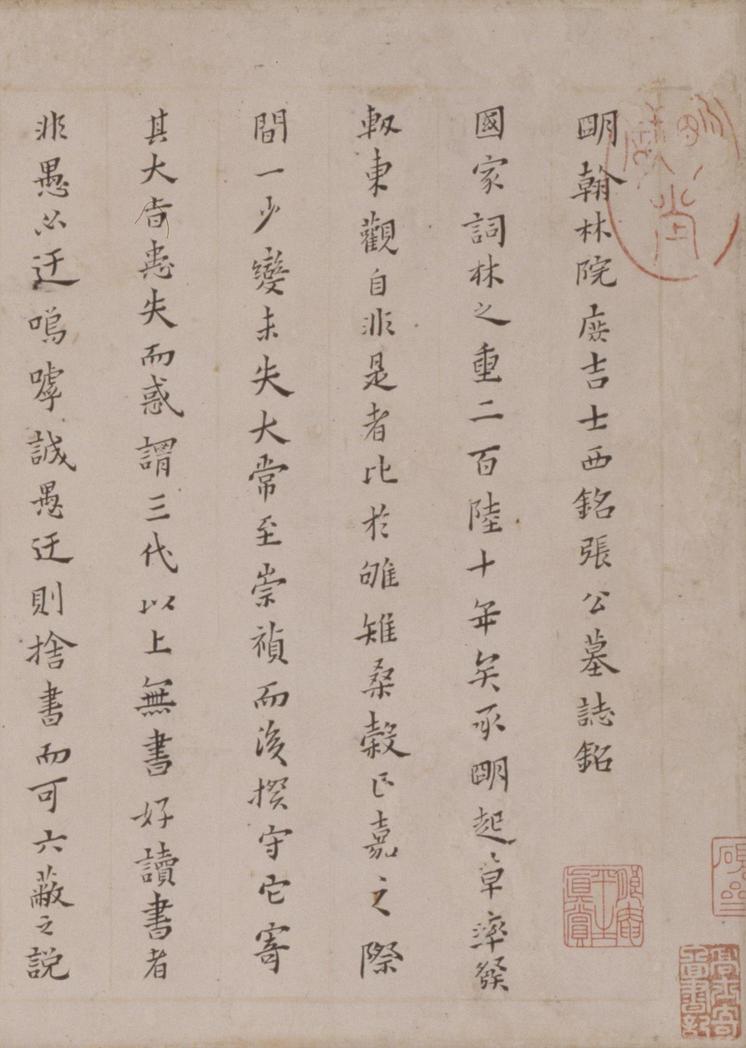 朙翰林院庶吉士西銘張公墓誌銘
國家詞林之重二百陸十年矣承朙起草率繇
軔東觀自非是者比於雊雉桑榖正嘉之際
間一少變未失大常至崇禎而後揆守它寄
其大患失而惑謂三代以上無書好讀書者
非愚必迂嗚嘑誠愚迂則捨書而可六蔽之説